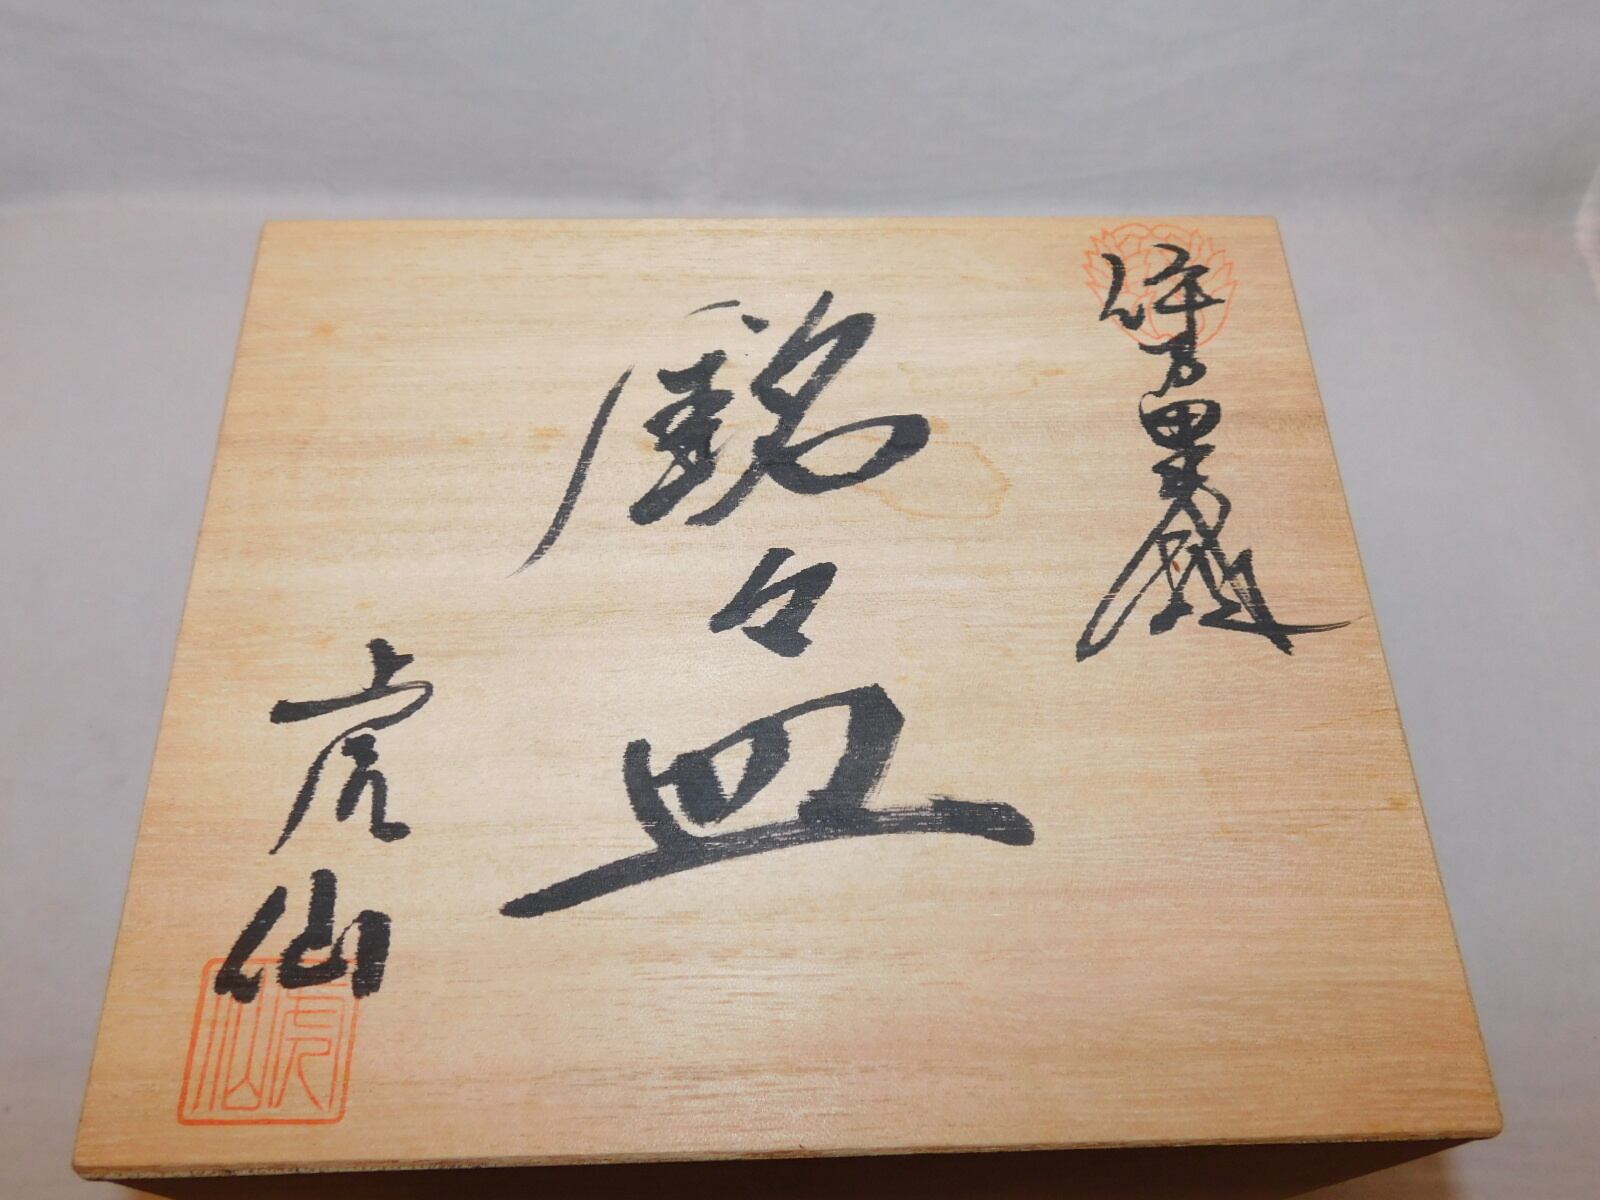 伊万里鍋
銘々皿
虎仙
虎仙